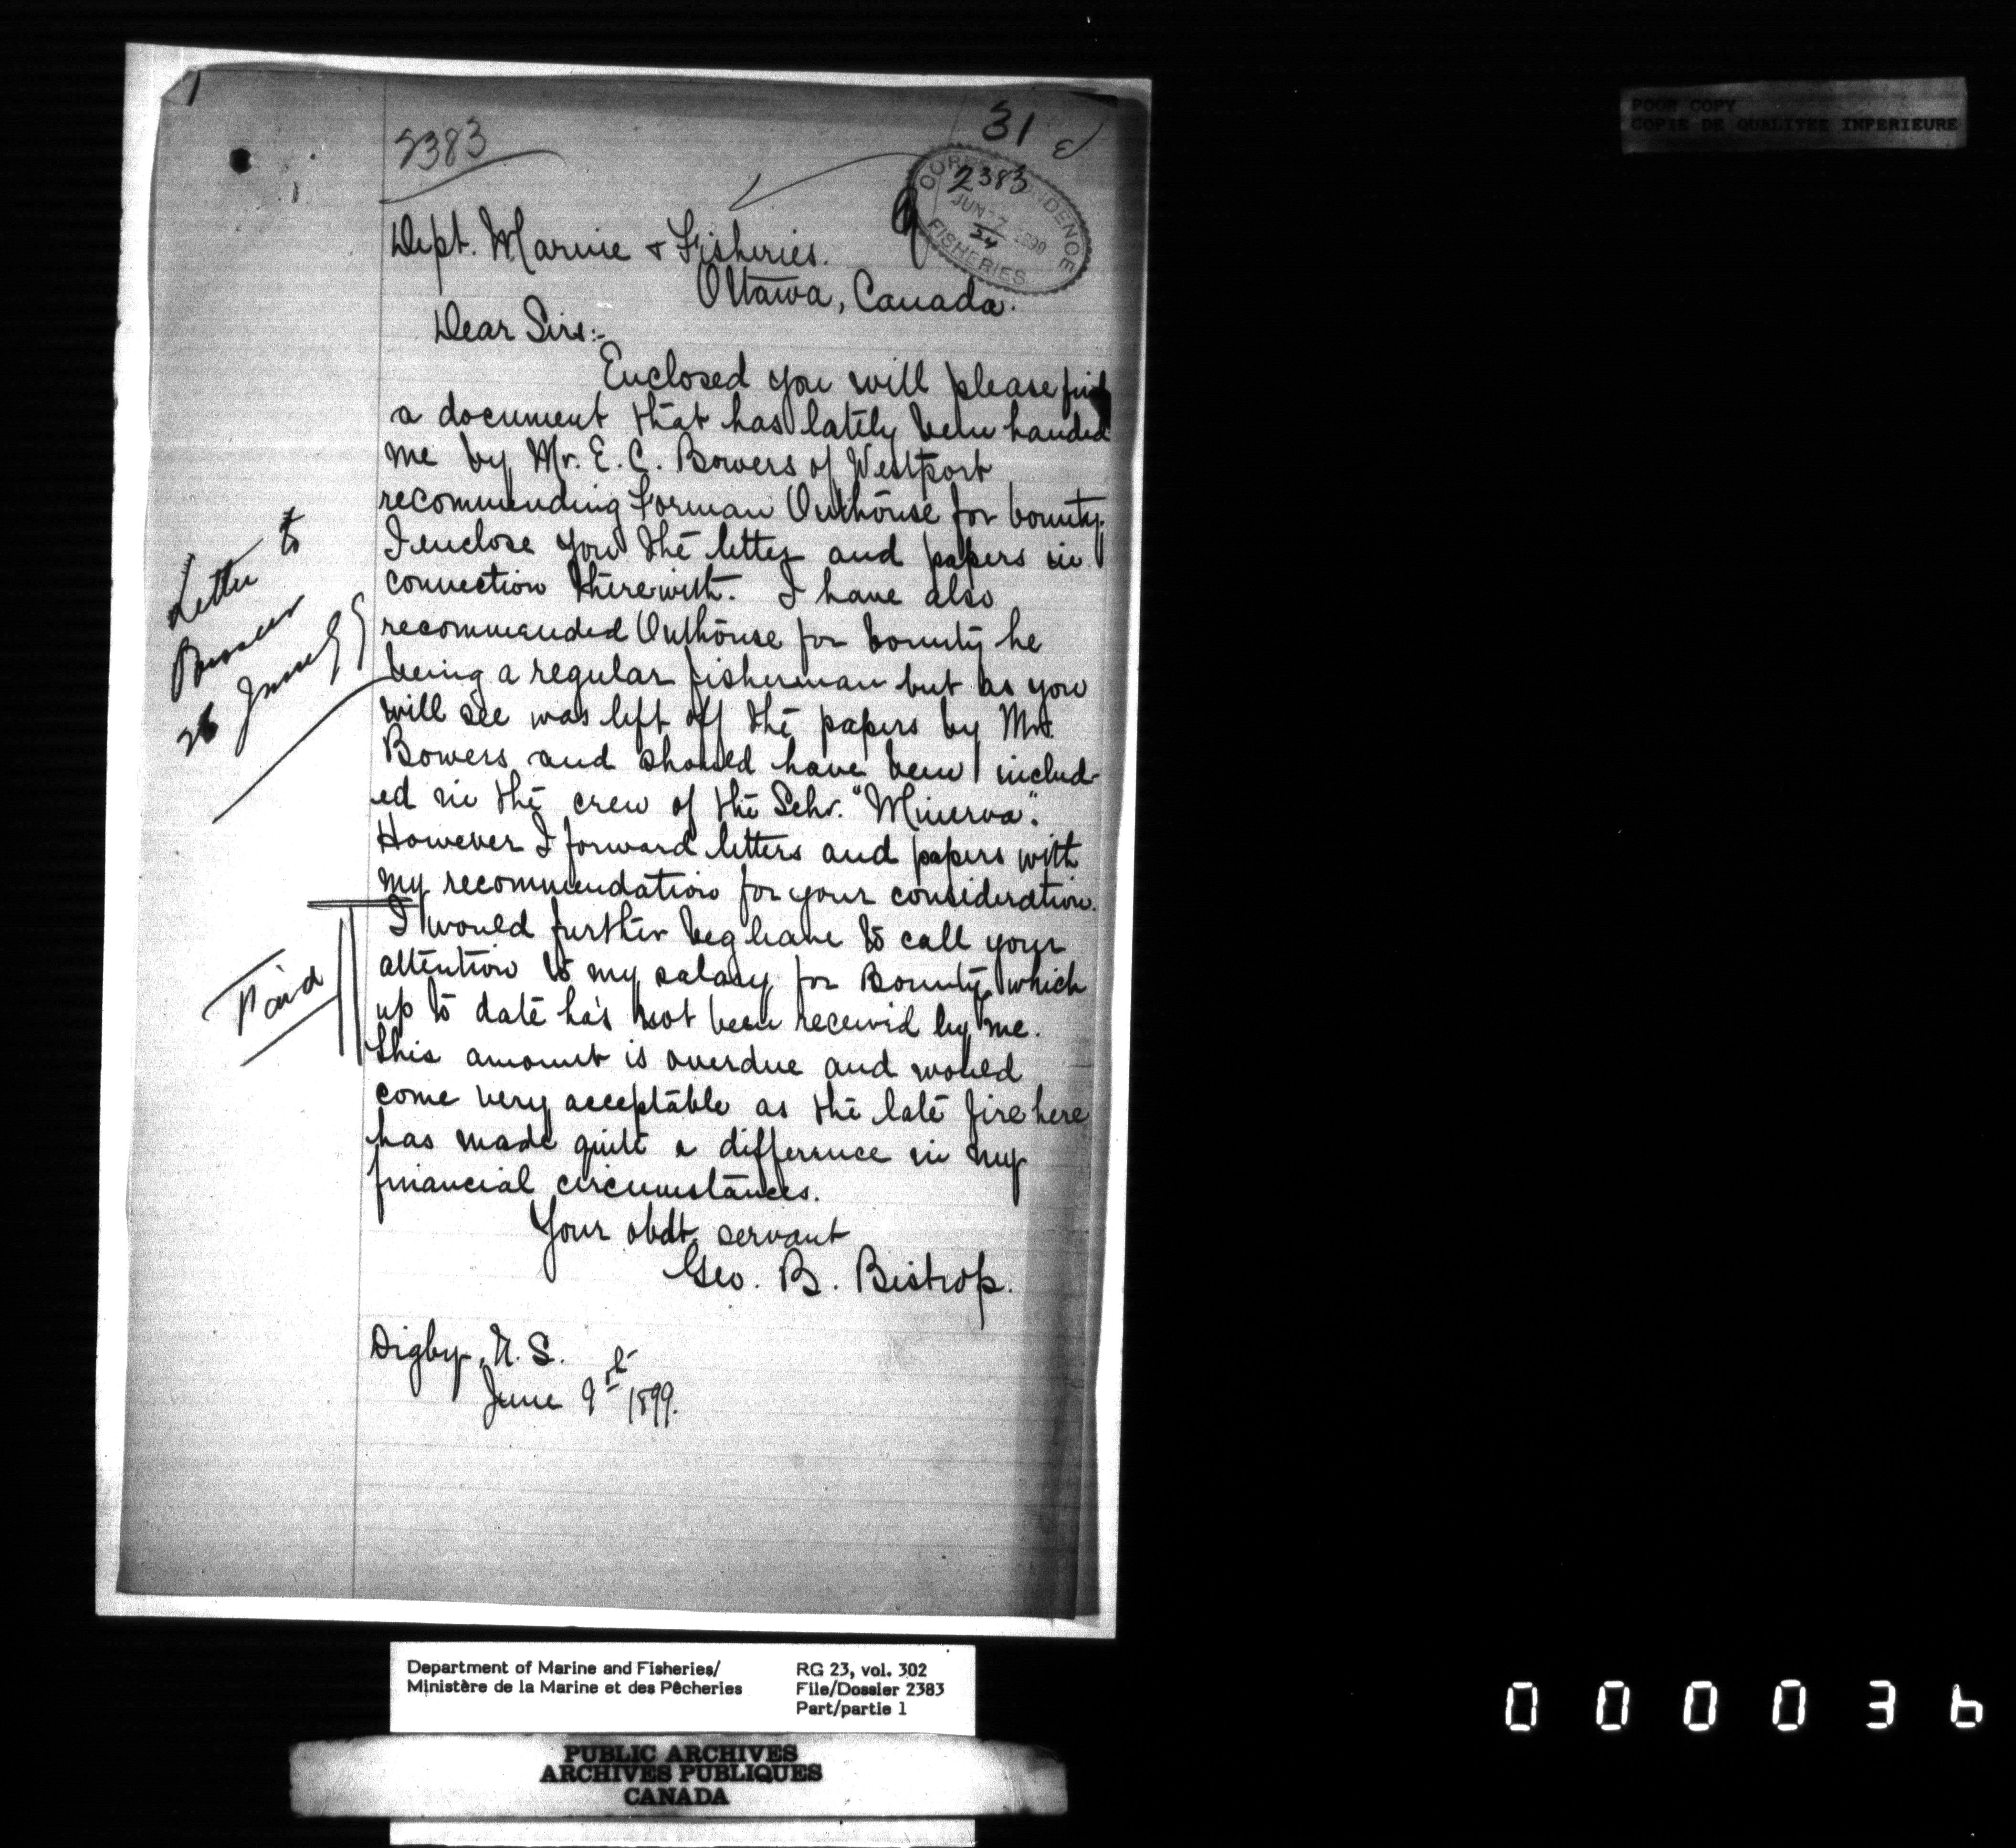 POOR COPY
COPIE DE QUALITEE INFERIEURE
31
2383
CORRESPONDENCE
2383
JUN 1899
24
FISHERIES
Dept. Marine & Fisheries.
Ottawa, Canada.
Dear Sirs:-
Enclosed you will please find
a document that has lately been handed
me by Mr. E. C. Bowers of Westport
recommending Forman Outhouse for bounty.
I enclose you the letter and papers in
connection therewith. I have also
recommended Outhouse for bounty he
being a regular fisherman but as you
will see was left off the papers by Mr.
Bowers and should have been includ-
ed in the crew of the Schr. "Minerva".
However I forward letters and papers with
my recommendation for your consideration.
I would further beg leave to call your
attention to my salary for Bounty which
up to date has not been received by me.
This amount is overdue and would
come very acceptable as the late fire here
has made quite a difference in my
financial circumstances.
Your obdt. servant
Geo. B. Bishop.
Digby, N. S.
June 9th 1899.
Letter to
26 June 99
Paid
Department of Marine and Fisheries/
Ministère de la Marine et des Pêcheries
RG 23, vol. 302
File/Dossier 2383
Part/partie 1
PUBLIC ARCHIVES
ARCHIVES PUBLIQUES
CANADA
000036